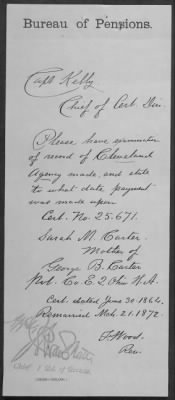 Bureau of Pensions.
Capt. Kelly
Chief of Cert. Div.
Please have examination
of record of Cleveland
Agency made, and state
to what date payment
was made upon
Cert. No. 25.671.
Sarah M. Carter.
Mother of
George B. Carter
Pvt. Co. E. 2 Ohio
Cert. dated June 30 1864.
Remarried Mch. 21. 1872.
Wood
Rev.
Chief